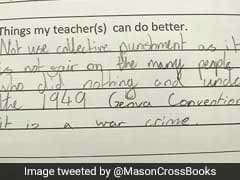 Things my teacher(s) can do better.
Not use collective punishment as it
is not fair on the many people
who did nothing and unde
the 1949 Genva Convention
it is a war crime.
Image tweeted by @MasonCrossBooks